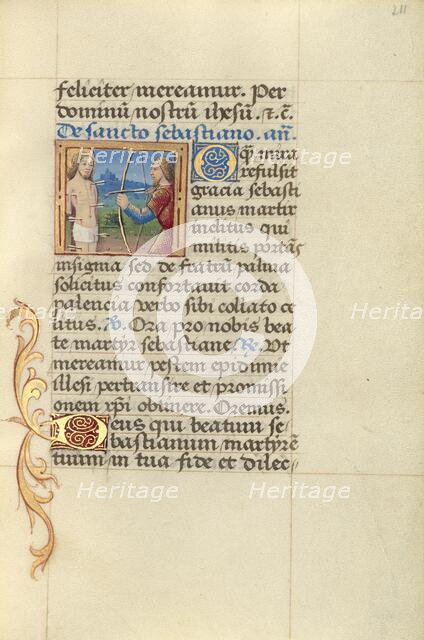 211
feliciter mereamur. Per
dominū nostrū ihesū. ⁊.c̄.
De sancto sebastiano. añ.
O q̄ mira
refulsit
gracia sebasti
anus martir
inclitus qui
militis portās
insignia sed de fratrū palma
solicitus confortauit corda
palencia verbo sibi collato ce
litus. V̄. Ora pro nobis bea
te martyr sebastiane. R̄. Ut
mereamur pestem epidimie
illesi pertransire et promissi
onem xp̄i obtinere. Oremus.
Deus qui beatum se
bastianum martyrē
tuum in tua fide et dilec
Heritage Heritage
Heritage Heritage
Heritage Heritage